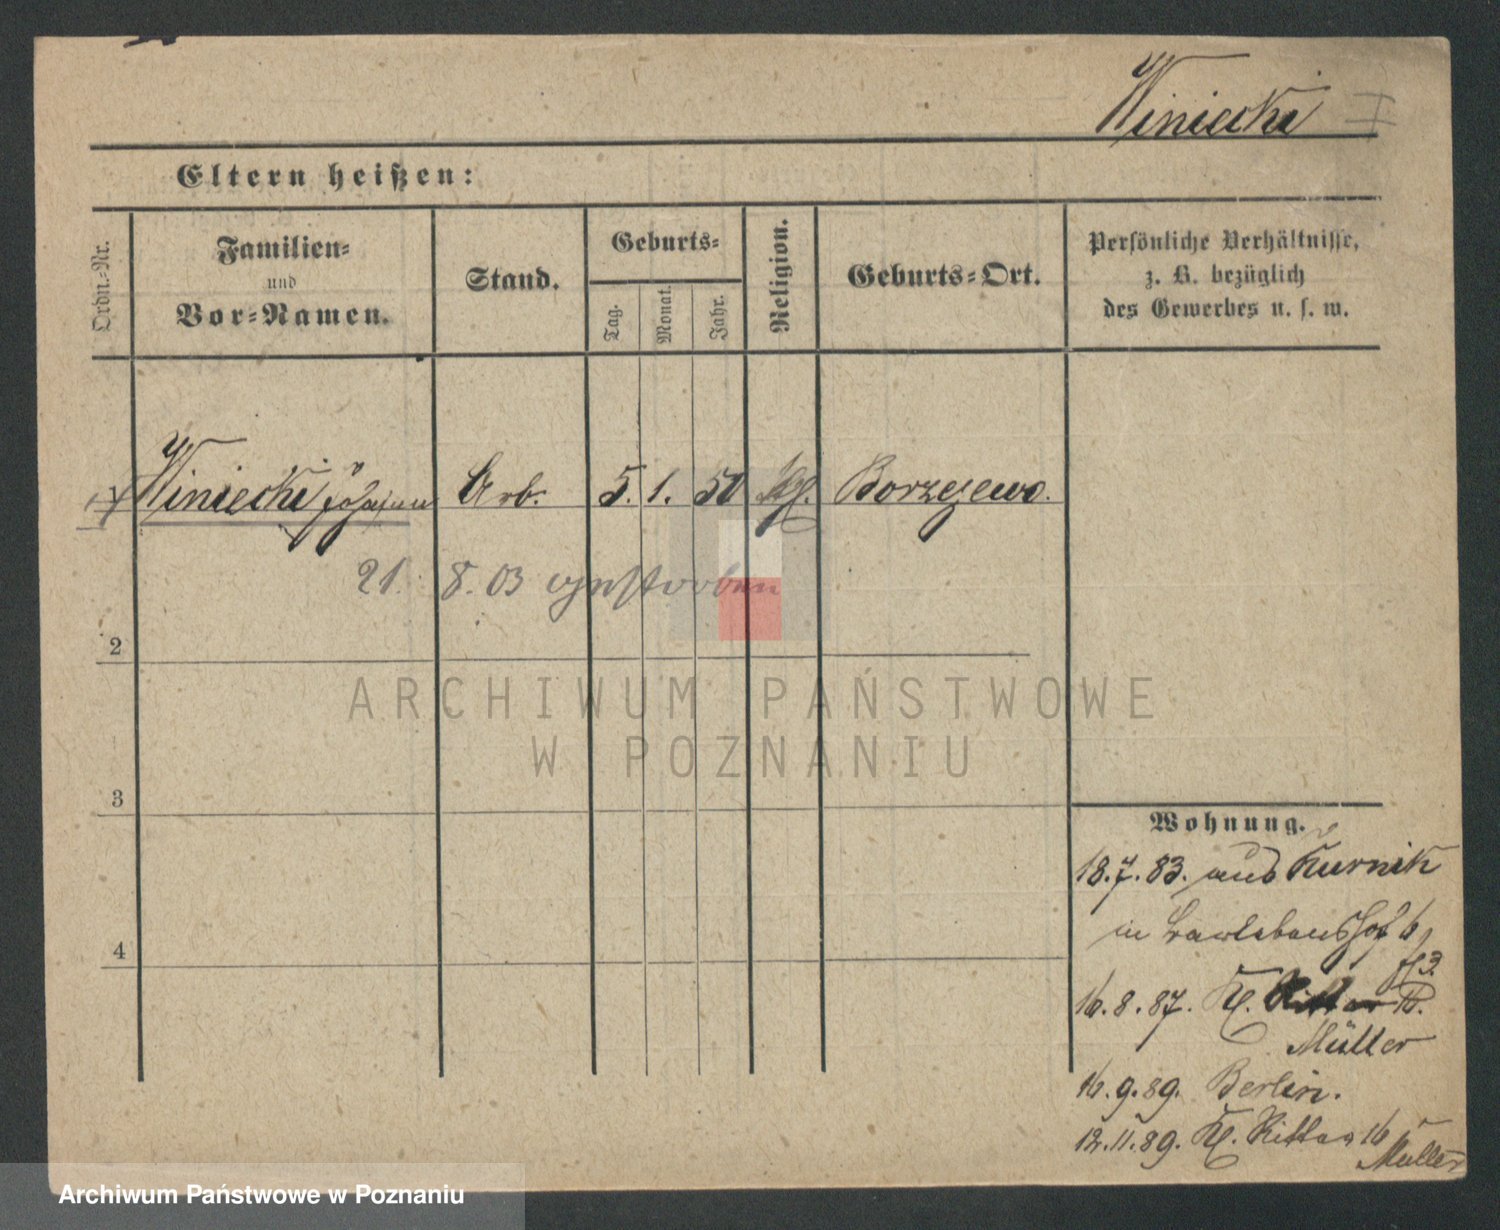 Winiecki I
Eltern heißen:
Ordn.-Nr.
Familien-
und
Vor-Namen.
Stand.
Geburts-
Tag.
Monat.
Jahr.
Religion.
Geburts-Ort.
Persönliche Verhältnisse,
z. B. bezüglich
des Gewerbes u. s. w.
Winiecki Johann Arb. 5. 1. 50 kth. Borzejewo.
21. 8. 03 gestorben
2
3
4
ARCHIWUM PAŃSTWOWE
W POZNANIU
Wohnung.
18.7.83. aus Kurnik
in
16.8.87. Kl. Ritter
Müller
16.9.89. Berlin.
12.11.89. Kl. Ritter 16
Müller
Archiwum Państwowe w Poznaniu